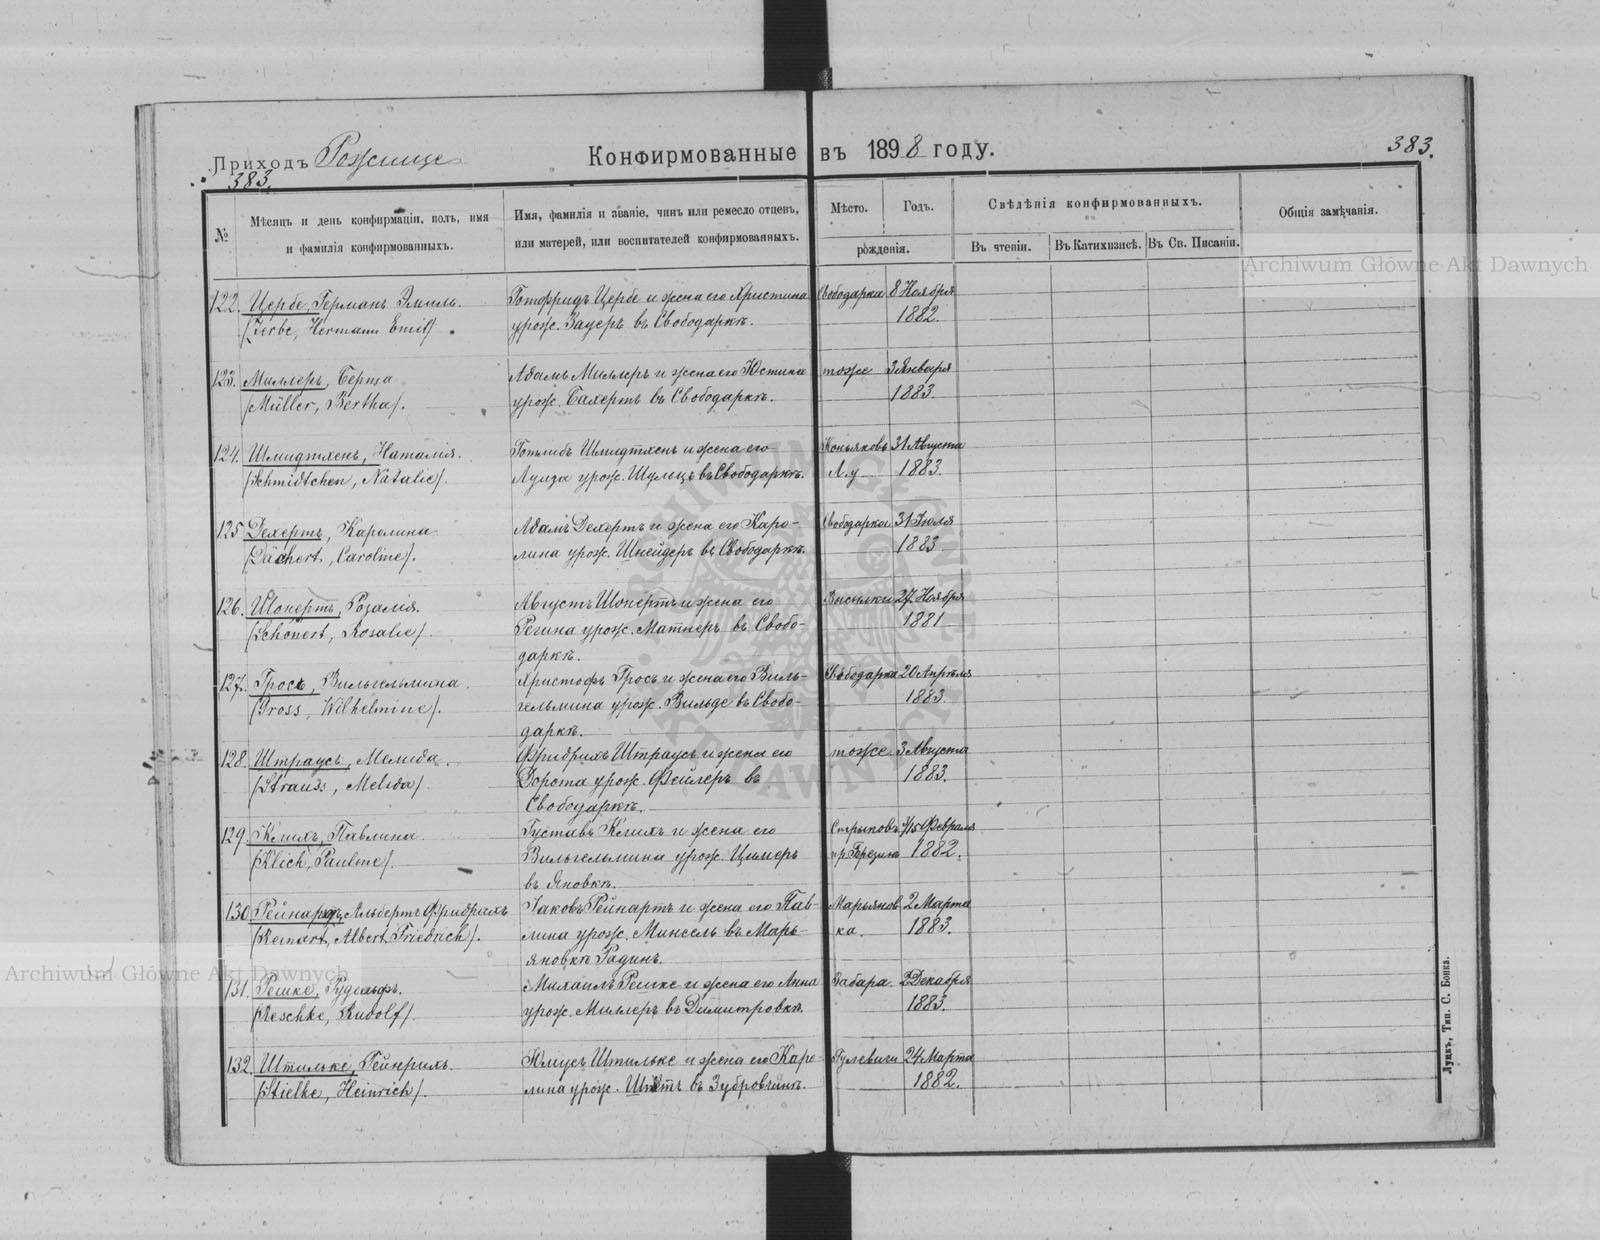 Приходъ Рожище
Конфирмованные въ 1898 году.
383.
383.
№
Мѣсяцъ и день конфирмаціи, полъ, имя
и фамилія конфирмованныхъ.
Имя, фамилія и званіе, чинъ или ремесло отцевъ,
или матерей, или воспитателей конфирмованныхъ.
Мѣсто.
Годъ.
рожденія.
Свѣдѣнія конфирмованныхъ.
Въ чтеніи.
Въ Катихизисѣ.
Въ Св. Писаніи.
Общія замѣчанія.
122. Цербе, Германъ Эмиль. Готфридъ Цербе и жена его Христина Свободарка 8 Ноября
(Zerbe, Hermann Emil). урож. Зауеръ въ Свободаркѣ. 1882.
123. Миллеръ, Берта Адамъ Миллеръ и жена его Юстина тоже 3 Января
(Müller, Bertha). урож. Бахертъ въ Свободаркѣ. 1883.
124. Шмидтхенъ, Наталія. Готлибъ Шмидтхенъ и жена его 31 Августа
(Schmidtchen, Natalie). Луиза урож. Шульцъ въ Свободаркѣ. 1883.
125 Дехертъ, Каролина Адамъ Дехертъ и жена его Каро-
Свободарка 31 Іюля
(Dächert, Caroline). лина урож. Шнейдеръ въ Свободаркѣ. 1883
126. Шонертъ, Розалія. Августъ Шонертъ и жена его Высылки 27 Ноября
(Schönert, Rosalie). Регина урож. Матнеръ въ Свобо- 1881
даркѣ.
127. Гросъ, Вильгельмина. Христофъ Гросъ и жена его Виль- Свободарка 20 Апрѣля
(Gross, Wilhelmine). гельмина урож. Вильде въ Свобо- 1883.
даркѣ.
128. Штраусъ, Мелида. Фридрихъ Штраусъ и жена его тоже 3 Августа
(Strauss, Melida). урож. Фейлеръ въ 1883.
Свободаркѣ.
129. Клихъ, Павлина Густавъ Клихъ и жена его Стрыковъ 3/15 Февраля
(Klich, Pauline). Вильгельмина урож. Цимеръ 1882.
въ Яновкѣ.
130. Рейнартъ, Альбертъ Фридрихъ Іаковъ Рейнартъ и жена его Пав- Марьянов 2 Марта
(Reinart, Albert Friedrich). лина урож. Минсель въ Марь- ка. 1883.
яновкѣ Радинъ.
131. Решке, Рудольфъ. Михаилъ Решке и жена его Анна Забара. 2 Декабря
(Reschke, Rudolf). урож. Миллеръ въ Димитровкѣ. 1883.
132. Штильке, Гейнрихъ. Юліусъ Штильке и жена его Каро- Гулевичи 24 Марта
(Stielke, Heinrich). лина урож. въ Зубровщинѣ. 1882.
Луцкъ, Тип. С. Бонка.
Archiwum Główne Akt Dawnych
Archiwum Główne Akt Dawnych